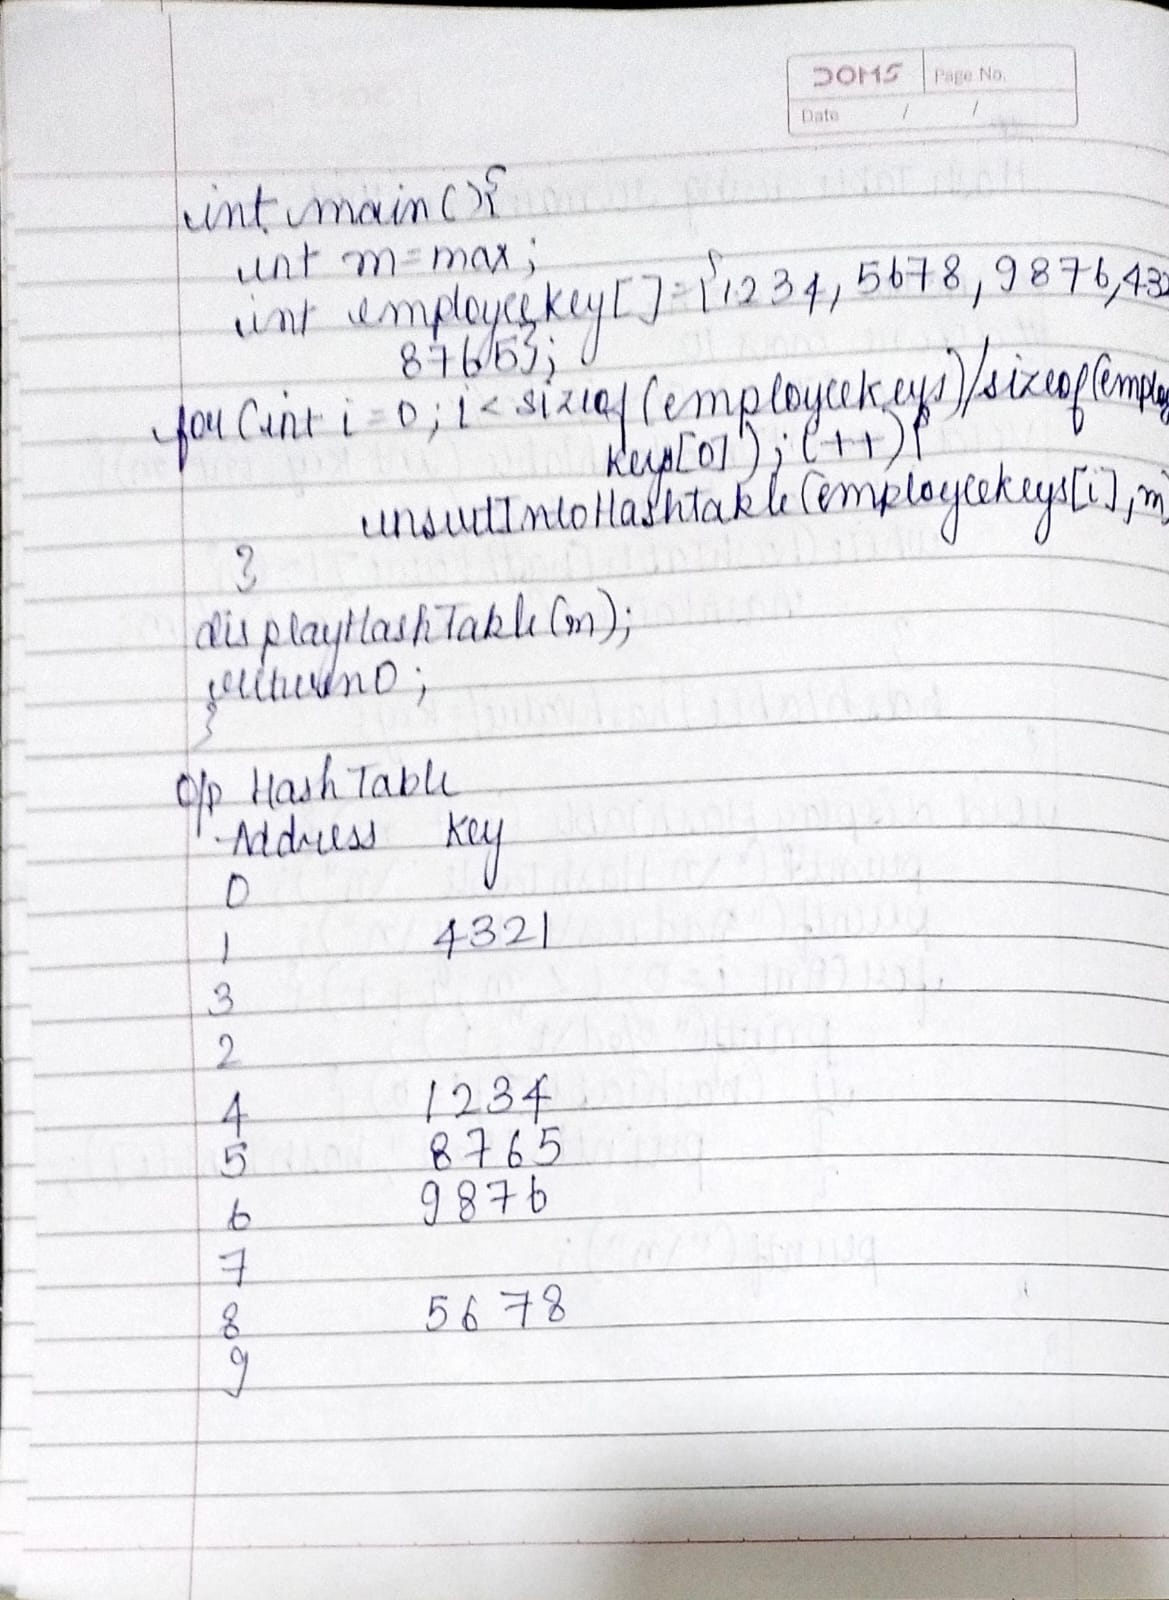 DOMS Page No.
Date / /
int main(){
int m=max;
int employeekey[]={1234,5678,9876,432
8765};
for(int i=0;i<sizeof(employeekeys)/sizeof(employ
keys[0]);i++){
insertIntoHashtable(employeekeys[i],m)
}
displayHashTable(m);
return0;
}
O/p Hash Table
Address Key
0
1 4321
3
2
4 1234
5 8765
6 9876
7
8 5678
9